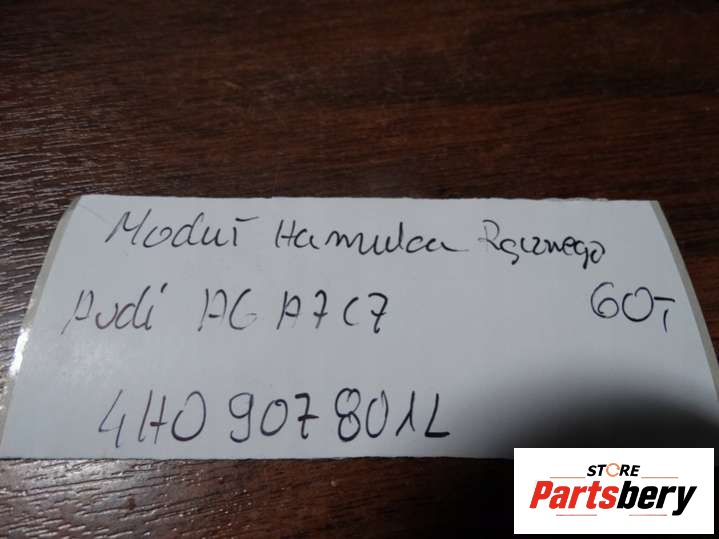 Moduł Hamulca Ręcznego
Audi A6 A7 C7 60,-
4H0 907 801L
STORE
Partsbery